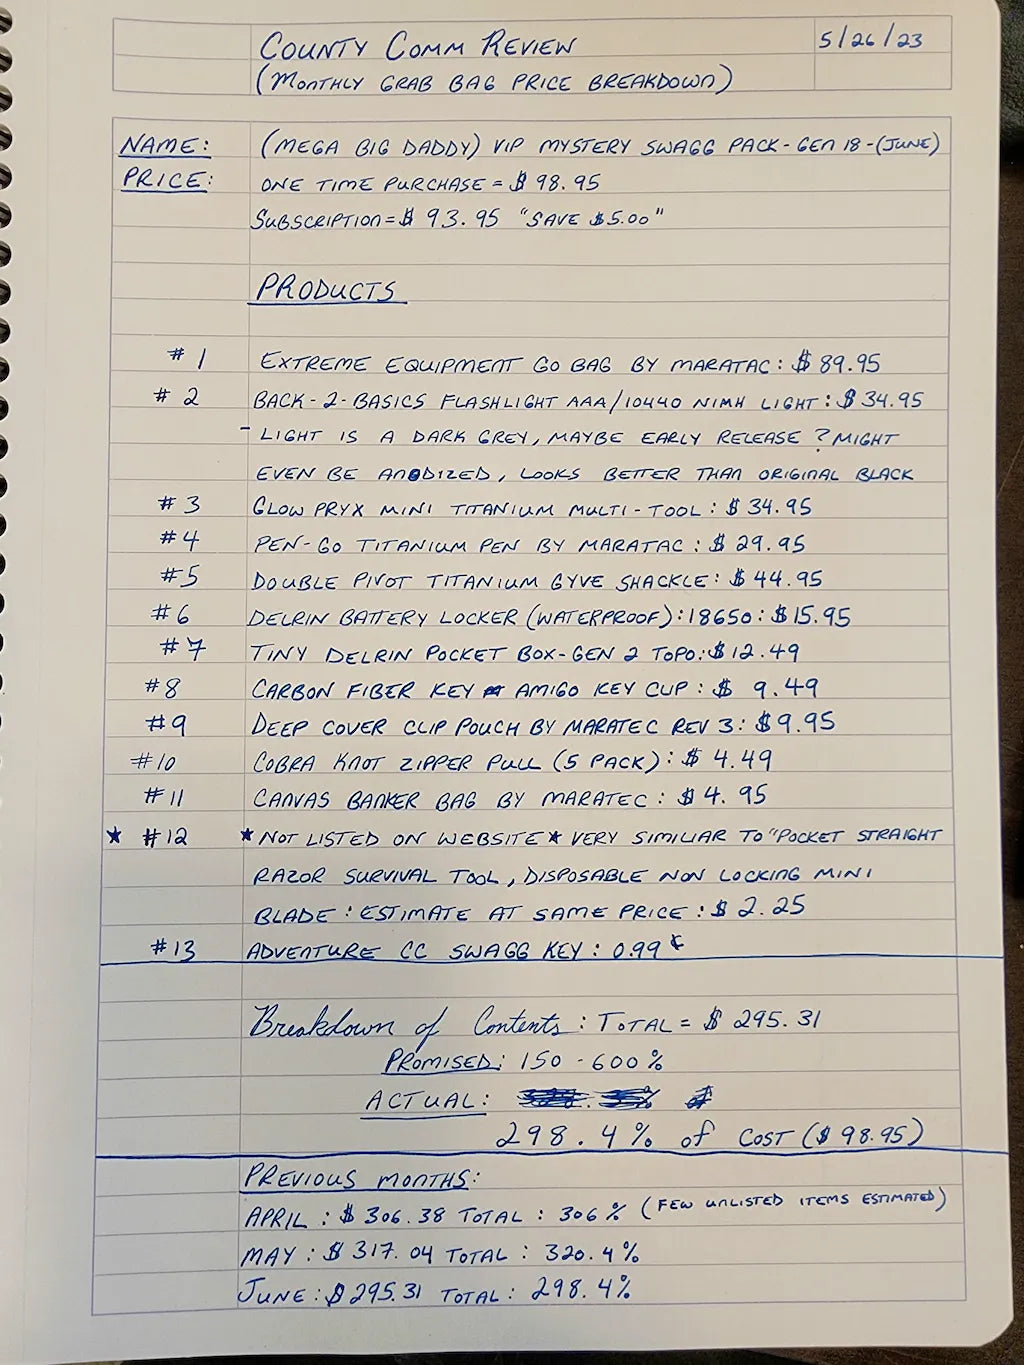 COUNTY COMM REVIEW 5/26/23
(MONTHLY GRAB BAG PRICE BREAKDOWN)
NAME: (MEGA BIG DADDY) VIP MYSTERY SWAGG PACK - GEN 18 - (JUNE)
PRICE: ONE TIME PURCHASE = $98.95
SUBSCRIPTION = $93.95 "SAVE $5.00"
PRODUCTS
#1 EXTREME EQUIPMENT GO BAG BY MARATAC: $89.95
#2 BACK-2-BASICS FLASHLIGHT AAA/10440 NIMH LIGHT: $34.95
- LIGHT IS A DARK GREY, MAYBE EARLY RELEASE? MIGHT
EVEN BE ANODIZED, LOOKS BETTER THAN ORIGINAL BLACK
#3 GLOW PRYX MINI TITANIUM MULTI-TOOL: $34.95
#4 PEN-GO TITANIUM PEN BY MARATAC: $29.95
#5 DOUBLE PIVOT TITANIUM GYVE SHACKLE: $44.95
#6 DELRIN BATTERY LOCKER (WATERPROOF): 18650: $15.95
#7 TINY DELRIN POCKET BOX-GEN 2 TOPO: $12.49
#8 CARBON FIBER KEY AMIGO KEY CLIP: $ 9.49
#9 DEEP COVER CLIP POUCH BY MARATEC REV 3: $9.95
#10 COBRA KNOT ZIPPER PULL (5 PACK): $4.49
#11 CANVAS BANKER BAG BY MARATEC: $4.95
★ #12 ★NOT LISTED ON WEBSITE★ VERY SIMILIAR TO "POCKET STRAIGHT
RAZOR SURVIVAL TOOL, DISPOSABLE NON LOCKING MINI
BLADE: ESTIMATE AT SAME PRICE: $2.25
#13 ADVENTURE CC SWAGG KEY: 0.99¢
Breakdown of Contents: TOTAL = $295.31
PROMISED: 150 - 600%
ACTUAL:
298.4% of COST ($98.95)
PREVIOUS MONTHS:
APRIL: $306.38 TOTAL: 306% (FEW UNLISTED ITEMS ESTIMATED)
MAY: $317.04 TOTAL: 320.4%
JUNE: $295.31 TOTAL: 298.4%